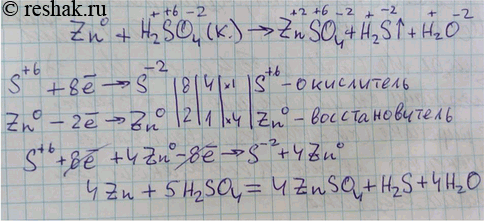 © reshak.ru
Zn⁰ + H₂⁺S⁺⁶O₄⁻²(к.) → Zn⁺²S⁺⁶O₄⁻² + H₂⁺S⁻²↑ + H₂⁺O⁻²
S⁺⁶ + 8ē → S⁻² |8|4|×1| S⁺⁶ - окислитель
Zn⁰ - 2ē → Zn⁰ |2|1|×4| Zn⁰ - восстановитель
S⁺⁶ + 8ē + 4Zn⁰ - 8ē → S⁻² + 4Zn⁰
4Zn + 5H₂SO₄ = 4ZnSO₄ + H₂S + 4H₂O